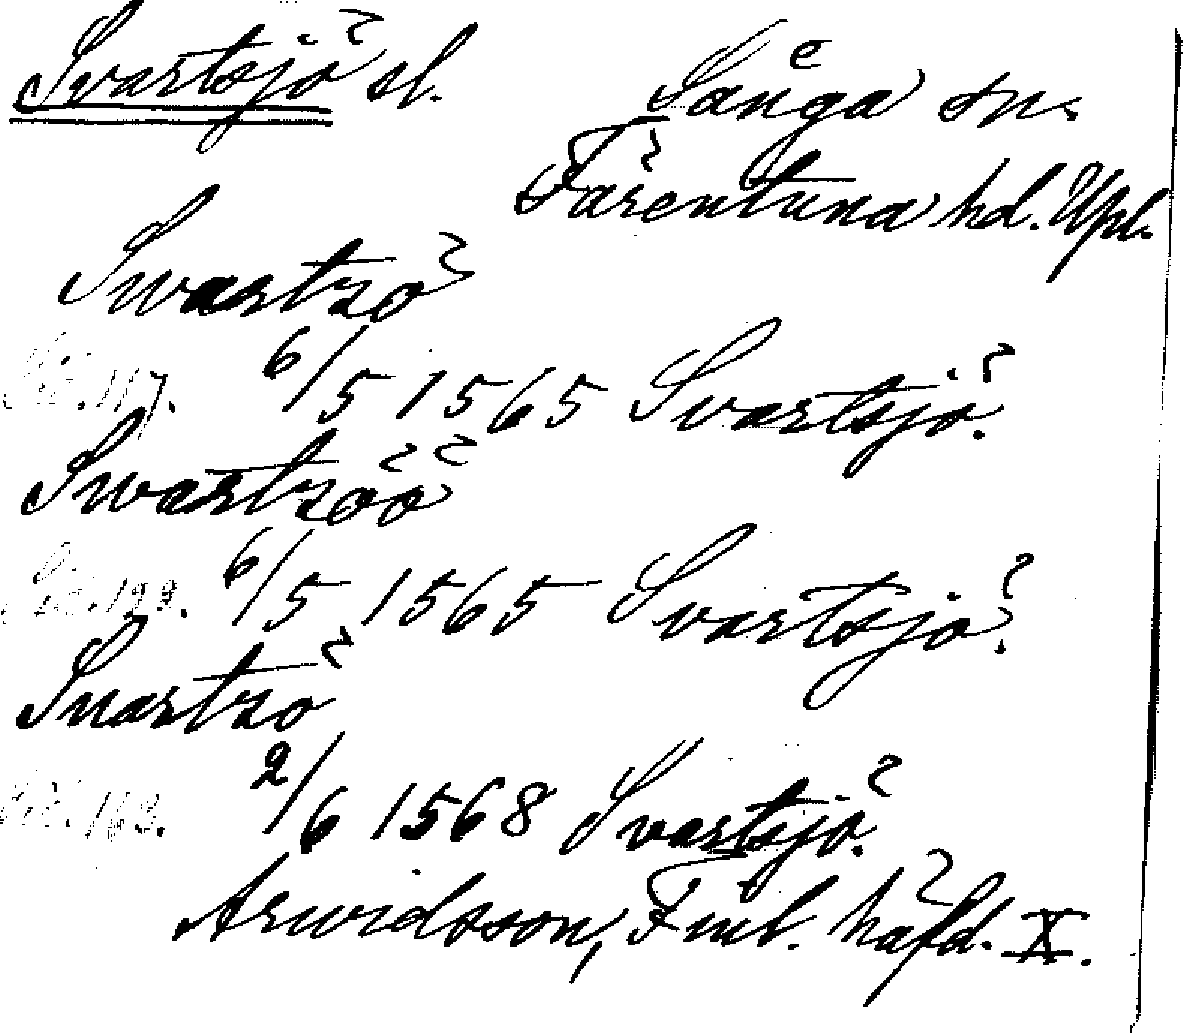 Svartsjö sl.
Sånga sn.
Färentuna hd. Upl.
Swartzö
6/5 1565 Svartsjö.
Swartzöö
6/5 1565 Svartsjö.
Suartzö
2/6 1568 Svartsjö.
Arwidsson, Finl. häfd. X.